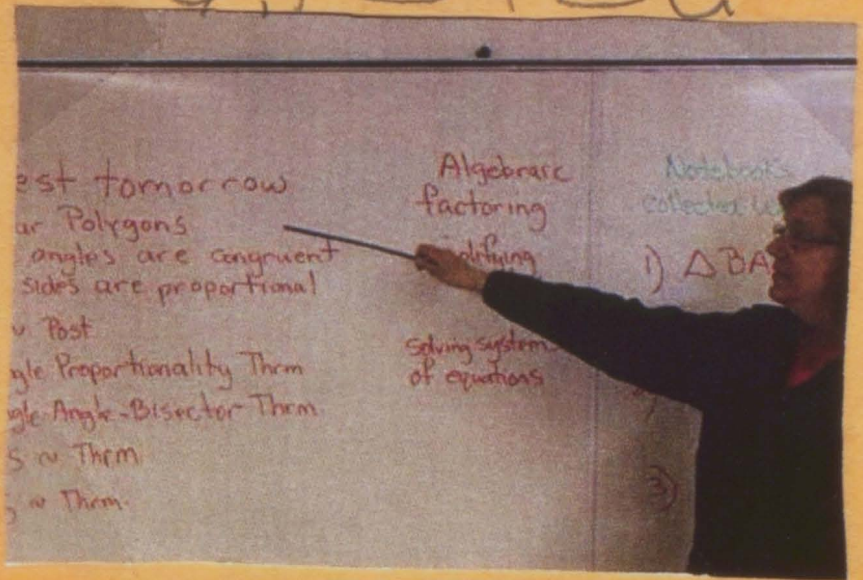 est tomorrow
ar Polygons
angles are congruent
sides are proportional
~ Post
gle Proportionality Thrm
gle-Angle-Bisector Thrm
S ~ Thrm
~ Thrm.
Algebraic
factoring
solving system
of equations
Notebooks
collected
1) △BA
3)